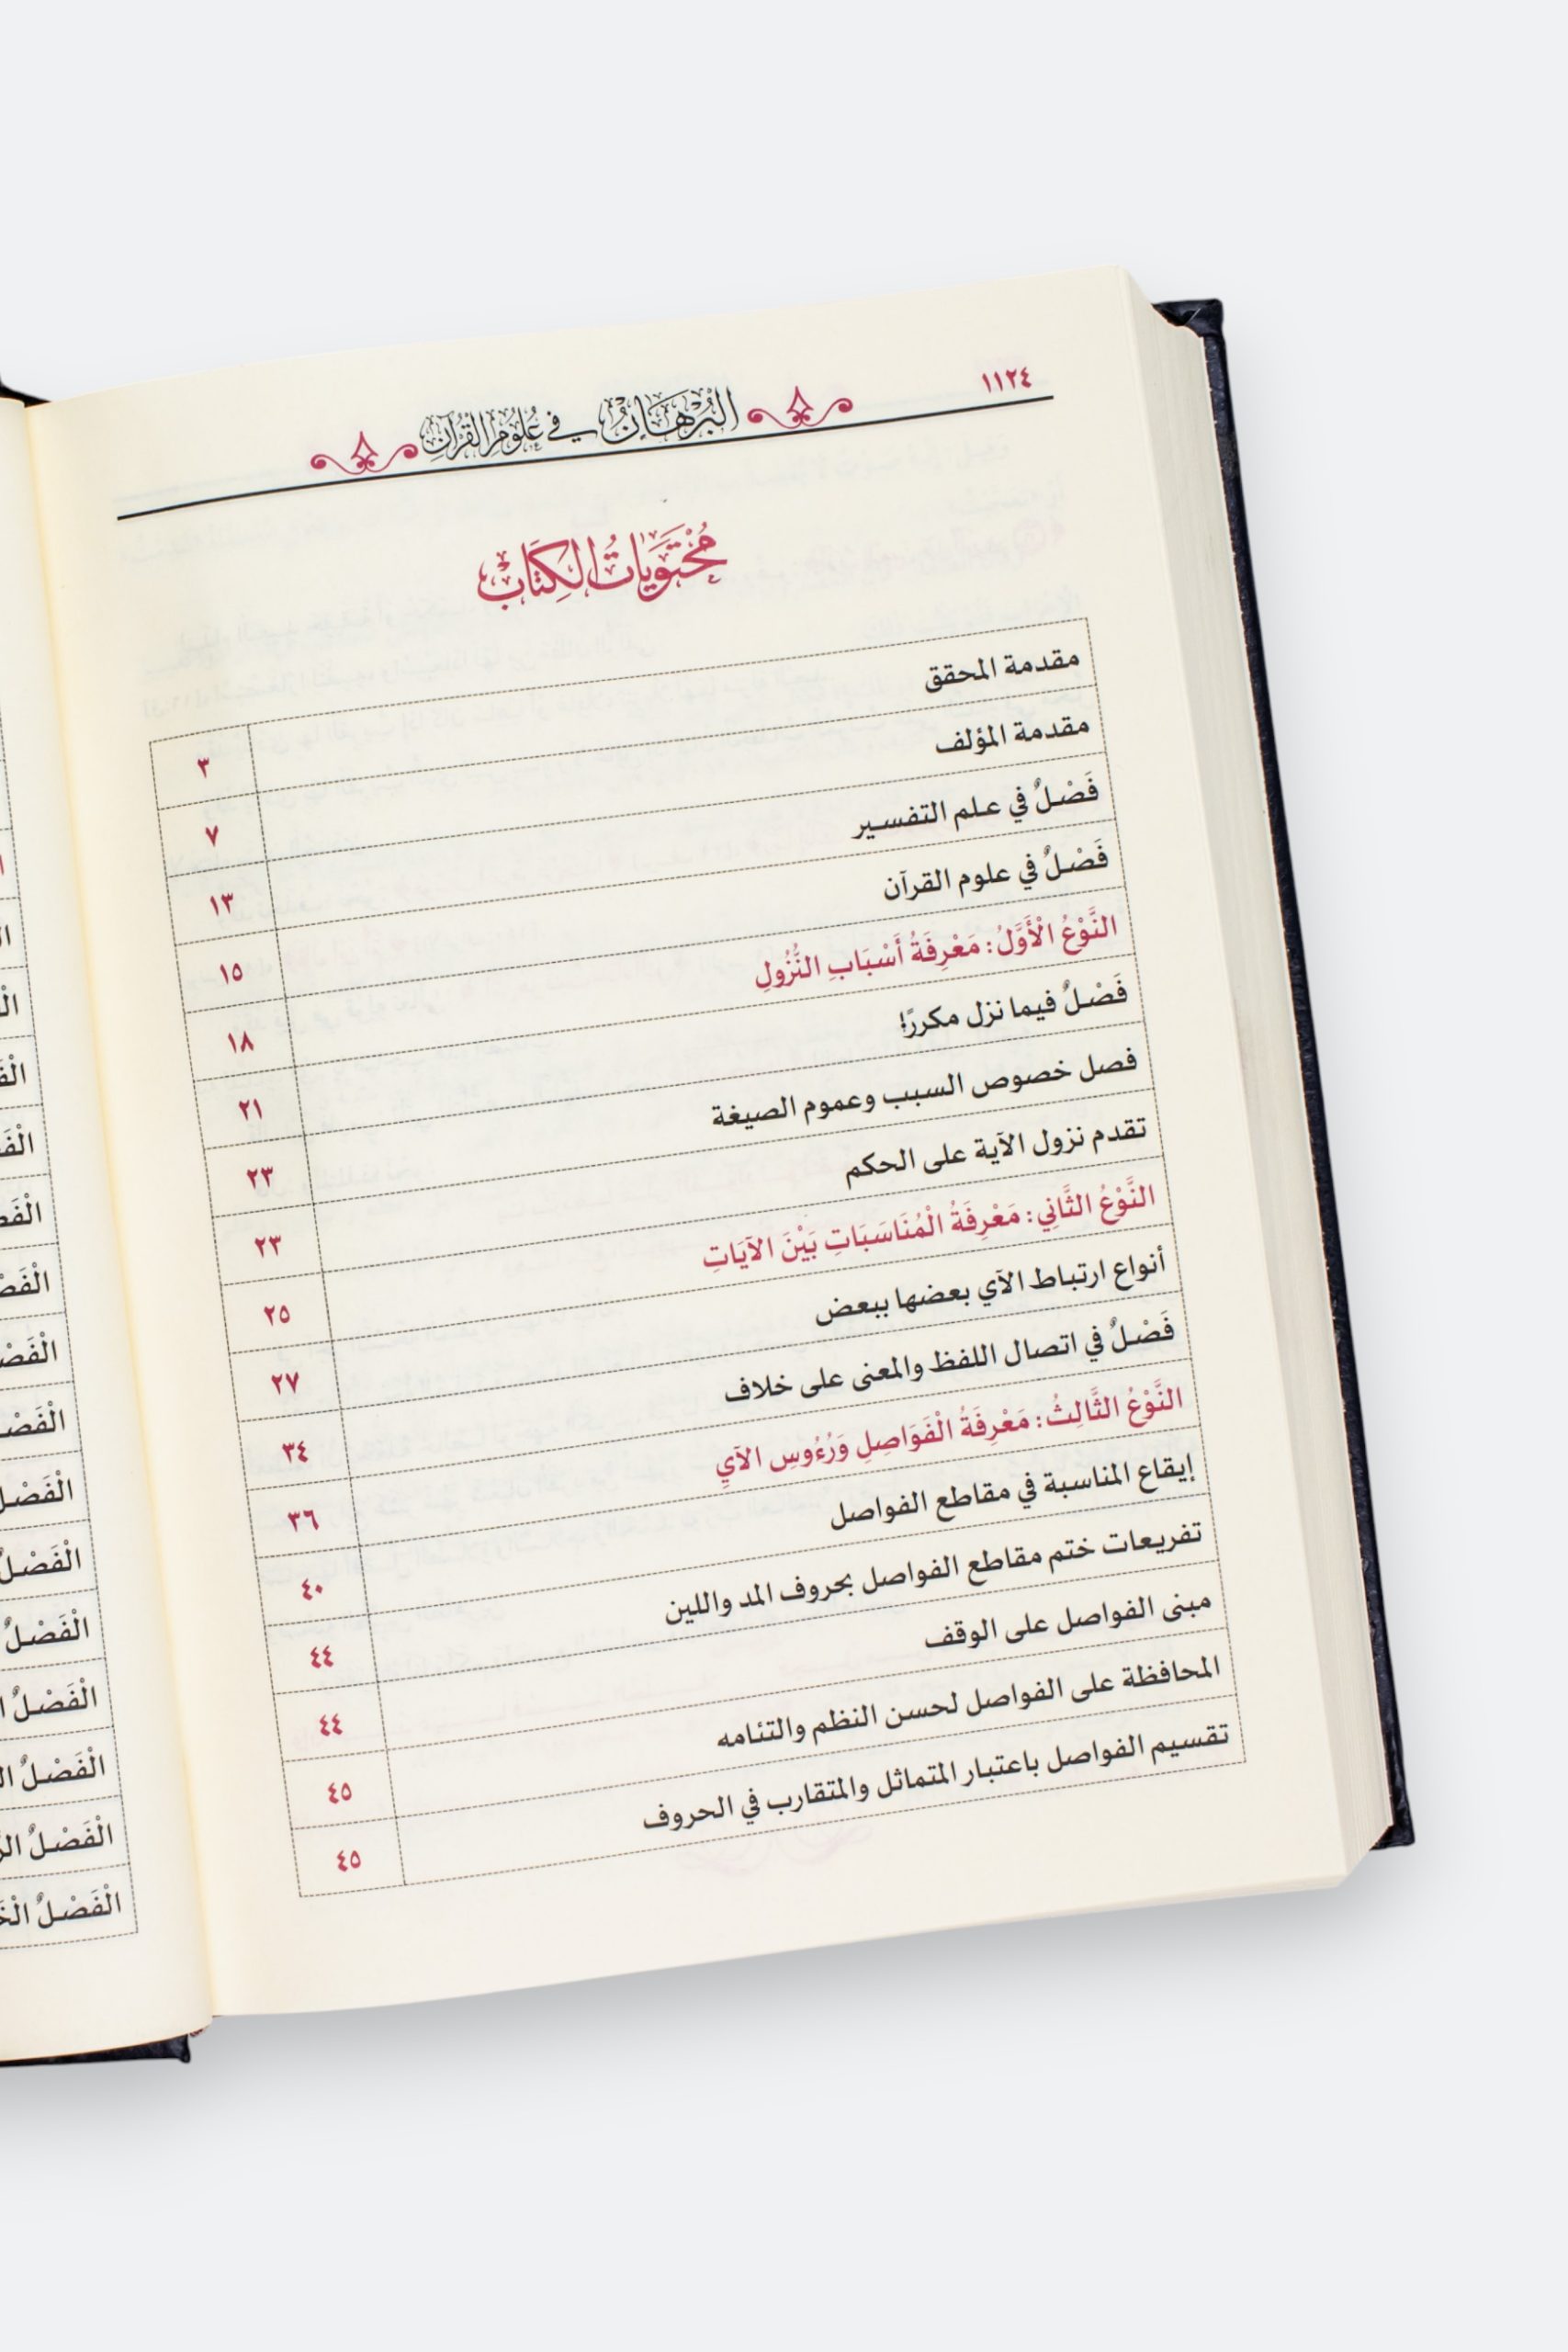 ١١٢٤
البُرْهَانُ في عُلُومِ القُرْآنِ
مُحْتَوَيَاتُ الكِتَابْ
مقدمة المحقق ٣
مقدمة المؤلف ٧
فَصْلٌ في علم التفسير ١٣
فَصْلٌ في علوم القرآن ١٥
النَّوْعُ الْأَوَّلُ: مَعْرِفَةُ أَسْبَابِ النُّزُولِ ١٨
فَصْلٌ فيما نزل مكررًا ٢١
فصل خصوص السبب وعموم الصيغة ٢٣
تقدم نزول الآية على الحكم ٢٣
النَّوْعُ الثَّانِي: مَعْرِفَةُ الْمُنَاسَبَاتِ بَيْنَ الآيَاتِ ٢٥
أنواع ارتباط الآي بعضها ببعض ٢٧
فَصْلٌ في اتصال اللفظ والمعنى على خلاف ٣٤
النَّوْعُ الثَّالِثُ: مَعْرِفَةُ الْفَوَاصِلِ وَرُءُوسِ الآيِ ٣٦
إيقاع المناسبة في مقاطع الفواصل ٤٠
تفريعات ختم مقاطع الفواصل بحروف المد واللين ٤٤
مبنى الفواصل على الوقف ٤٤
المحافظة على الفواصل لحسن النظم والتئامه ٤٥
تقسيم الفواصل باعتبار المتماثل والمتقارب في الحروف ٤٥
الْفَصْلُ
الْفَصْلُ
الْفَصْلُ
الْفَصْلُ
الْفَصْلُ
الْفَصْلُ
الْفَصْلُ